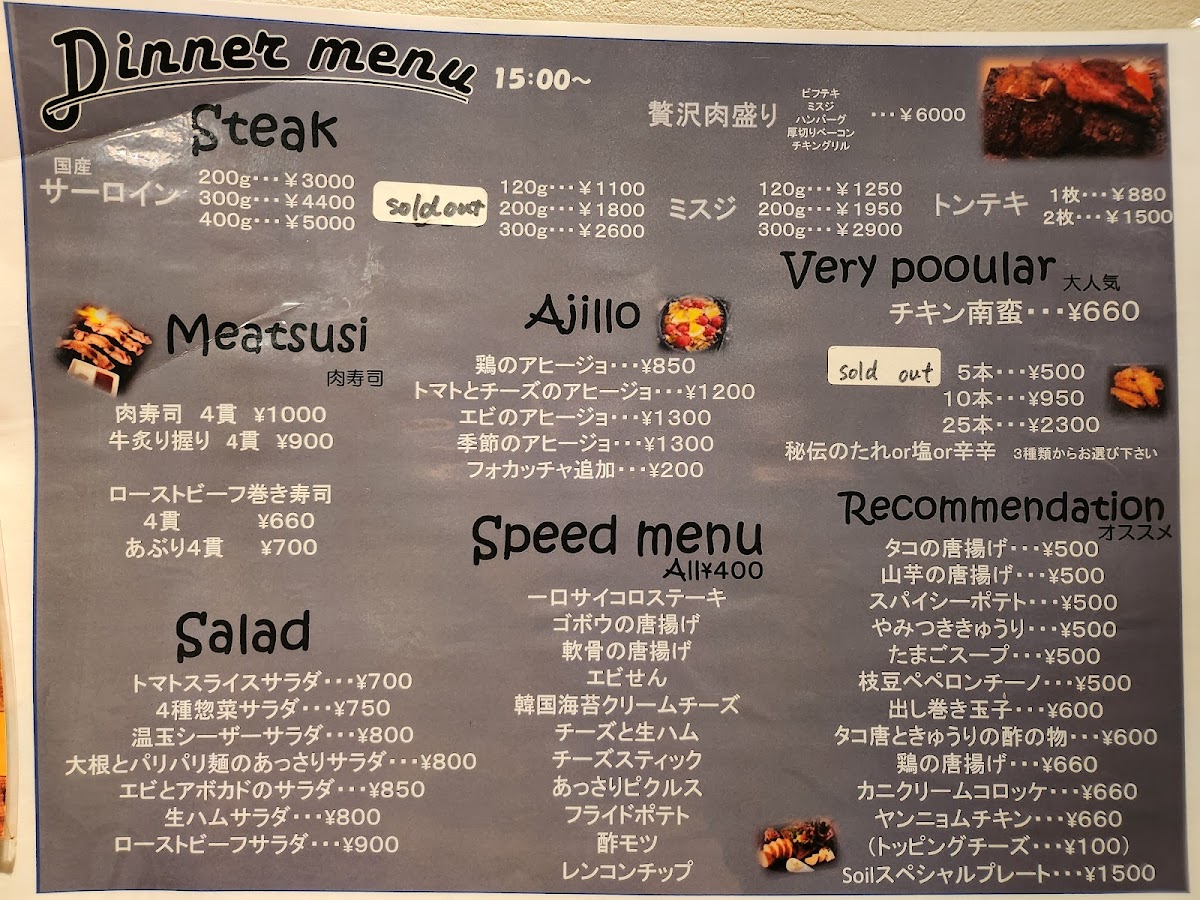 Dinner menu 15:00～
Steak
贅沢肉盛り
ビフテキ
ミスジ
ハンバーグ
厚切りベーコン
チキングリル
･･･￥6000
国産
サーロイン
200g･･･￥3000
300g･･･￥4400
400g･･･￥5000
sold out
120g･･･￥1100
200g･･･￥1800
300g･･･￥2600
ミスジ
120g･･･￥1250
200g･･･￥1950
300g･･･￥2900
トンテキ
1枚･･･￥880
2枚･･･￥1500
Very pooular 大人気
チキン南蛮･･･¥660
sold out
5本･･･¥500
10本･･･¥950
25本･･･¥2300
秘伝のたれor塩or辛辛 3種類からお選び下さい
Meatsusi
肉寿司
肉寿司 4貫 ¥1000
牛炙り握り 4貫 ¥900
ローストビーフ巻き寿司
4貫 ¥660
あぶり4貫 ¥700
Ajillo
鶏のアヒージョ･･･¥850
トマトとチーズのアヒージョ･･･¥1200
エビのアヒージョ･･･¥1300
季節のアヒージョ･･･¥1300
フォカッチャ追加･･･¥200
Speed menu
All¥400
一口サイコロステーキ
ゴボウの唐揚げ
軟骨の唐揚げ
エビせん
韓国海苔クリームチーズ
チーズと生ハム
チーズスティック
あっさりピクルス
フライドポテト
酢モツ
レンコンチップ
Salad
トマトスライスサラダ･･･¥700
4種惣菜サラダ･･･¥750
温玉シーザーサラダ･･･¥800
大根とパリパリ麺のあっさりサラダ･･･¥800
エビとアボカドのサラダ･･･¥850
生ハムサラダ･･･¥800
ローストビーフサラダ･･･¥900
Recommendation
オススメ
タコの唐揚げ･･･¥500
山芋の唐揚げ･･･¥500
スパイシーポテト･･･¥500
やみつききゅうり･･･¥500
たまごスープ･･･¥500
枝豆ペペロンチーノ･･･¥500
出し巻き玉子･･･¥600
タコ唐ときゅうりの酢の物･･･¥600
鶏の唐揚げ･･･¥660
カニクリームコロッケ･･･¥660
ヤンニョムチキン･･･¥660
(トッピングチーズ･･･¥100)
Soilスペシャルプレート･･･¥1500